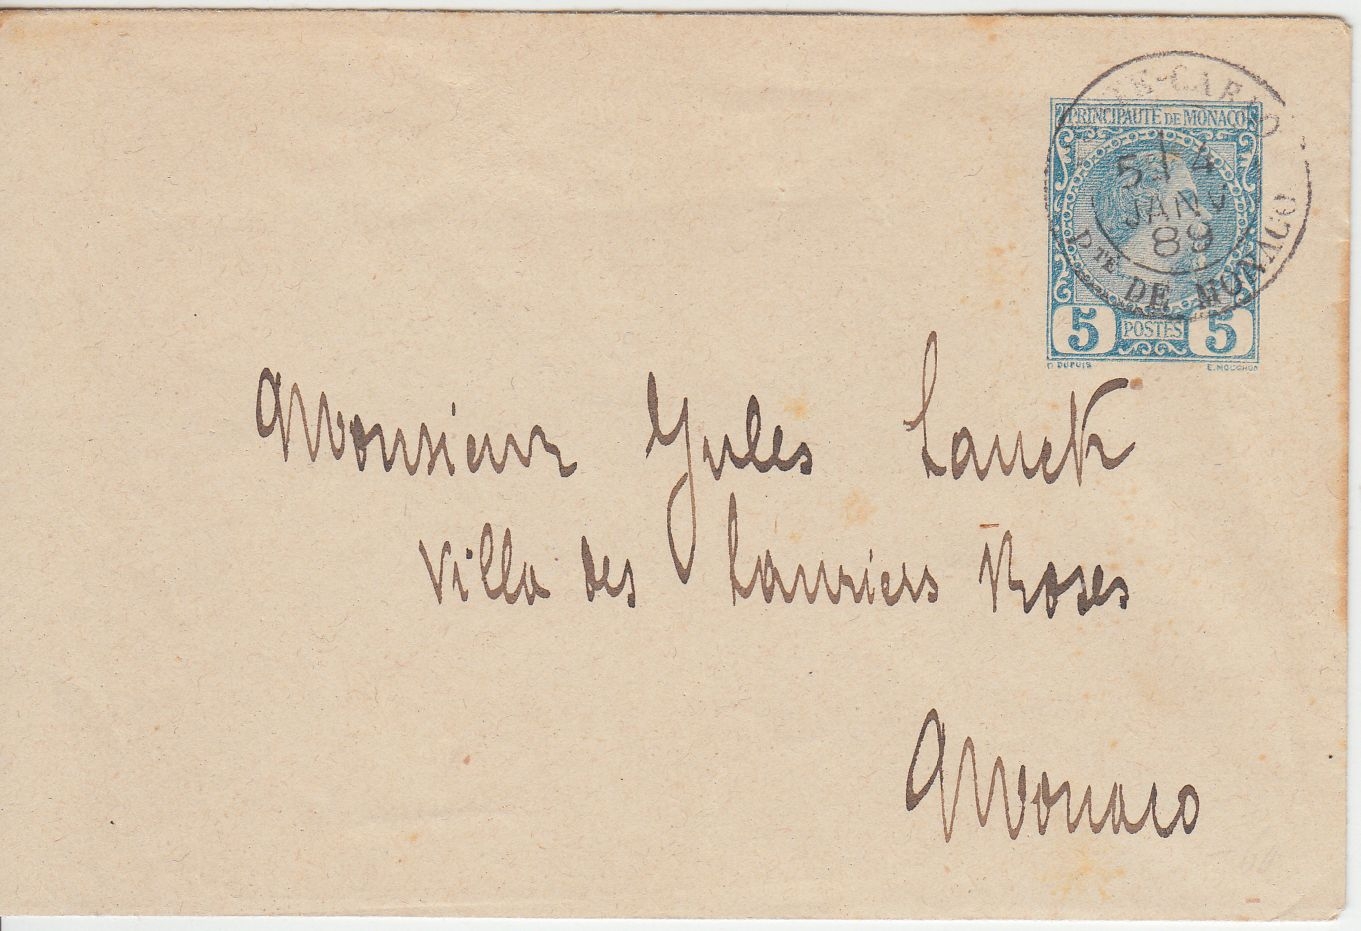 TE-CARLO
PRINCIPAUTÉ DE MONACO
5E 4
JANV
89
PTE DE MONACO
5 POSTES 5
D. DUPUIS E. MOUCHON
Monsieur Jules Lauck
Villa des Lauriers Roses
Monaco